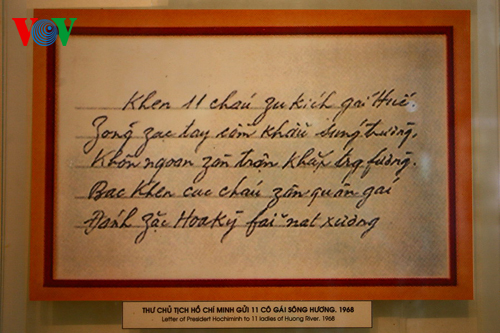 VOV
Khen 11 cháu zu kích gái Huế.
Zong zac tay cầm khẩu súng trường,
Khôn ngoan zàn trận khắp trg fương.
Bac Khen cac cháu zân quân gái
Đánh zặc Hoa Kỳ fải nat xương
THƯ CHỦ TỊCH HỒ CHÍ MINH GỬI 11 CÔ GÁI SÔNG HƯƠNG. 1968
Letter of Presidert Hochiminh to 11 ladies of Huong River. 1968